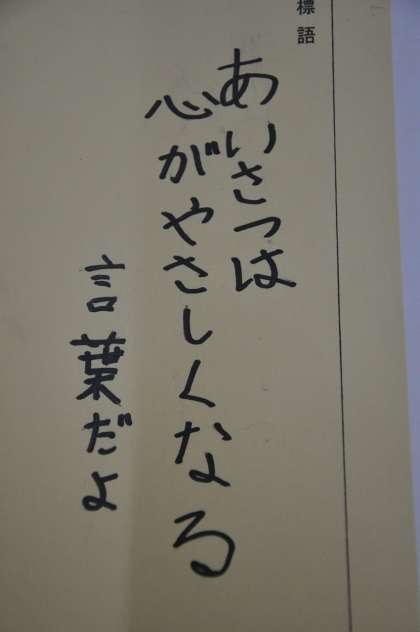 標語
あいさつは
心がやさしくなる
言葉だよ